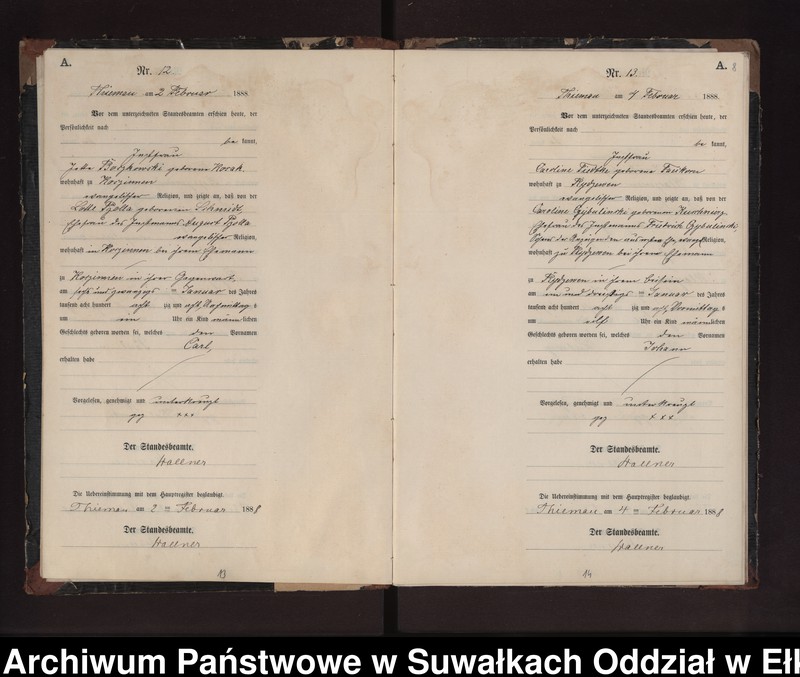 A.
Nr. 12.
Thiemau am 2 Februar 1888.
Vor dem unterzeichneten Standesbeamten erschien heute, der
Persönlichkeit nach
be kannt,
Instfrau
geborene Nowak
wohnhaft zu Kosziunen
evangelischer Religion, und zeigte an, daß von der
geborenen Schmidt,
Ehefrau des Instmanns August
evangelischer Religion,
wohnhaft in Kosziunen bei ihrem Ehemann
zu Kosziunen in ihrer Gegenwart
am sechs und zwanzigs ten Januar des Jahres
tausend acht hundert acht zig und acht, Nachmittag s
um ein Uhr ein Kind männlichen
Geschlechts geboren worden sei, welches den Vornamen
Carl,
erhalten habe
Vorgelesen, genehmigt und unterkreuzt
gez xxx
Der Standesbeamte.
Hallner
Die Uebereinstimmung mit dem Hauptregister beglaubigt.
Thiemau am 2 ten Februar 1888
Der Standesbeamte.
Hallner
13
A. 8
Nr. 13.
Thiemau am 4 Februar 1888.
Vor dem unterzeichneten Standesbeamten erschien heute, der
Persönlichkeit nach
be kannt,
Instfrau
Caroline geborene
wohnhaft zu Rydzewen
evangelischer Religion, und zeigte an, daß von der
Caroline Cybulinski geborenen
Ehefrau des Instmanns Friedrich Cybulinski
Religion,
wohnhaft zu Rydzewen bei ihrem Ehemann
zu Rydzewen in ihrem beisein
am ein und dreißigs ten Januar des Jahres
tausend acht hundert acht zig und acht, Vormittag s
um elf Uhr ein Kind männlichen
Geschlechts geboren worden sei, welches den Vornamen
Johann
erhalten habe
Vorgelesen, genehmigt und unterkreuzt
gez xxx
Der Standesbeamte.
Hallner
Die Uebereinstimmung mit dem Hauptregister beglaubigt.
Thiemau am 4 ten Februar 1888
Der Standesbeamte.
Hallner
14
Archiwum Państwowe w Suwałkach Oddział w Eł